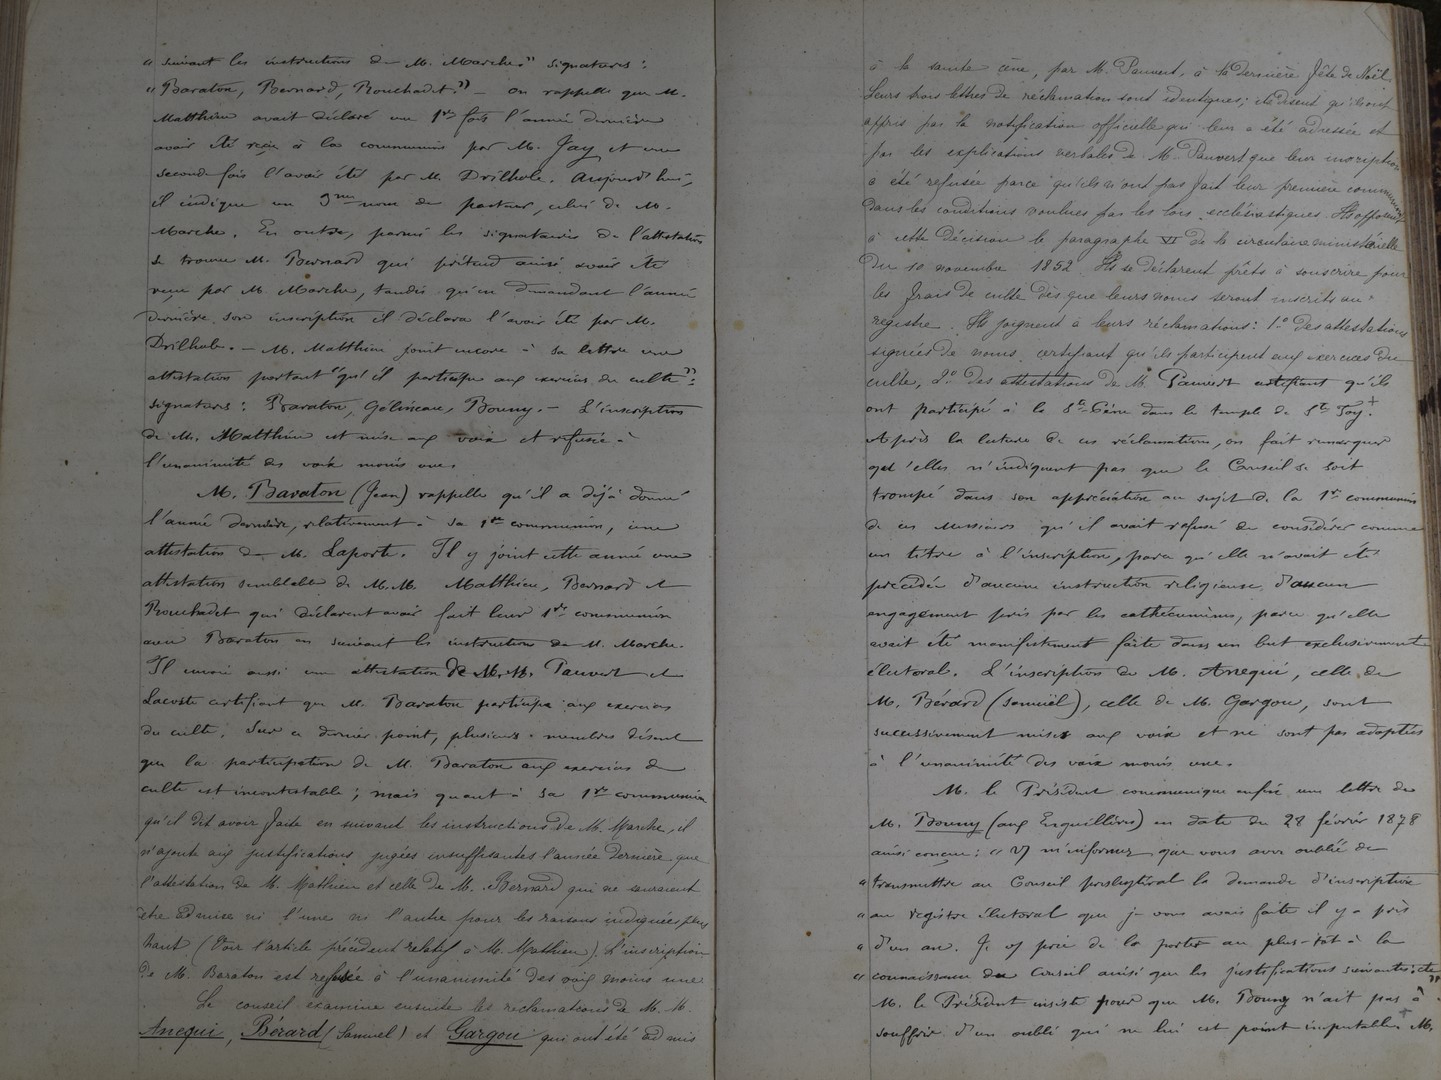 « suivant les instructions de M. Marche. » signatures :
« Baraton, Bernard, Rouchadet. » — On rappelle que M.
Matthieu avait déclaré une 1re fois l'année dernière
avoir été reçu à la communion par M. Jay et une
seconde fois l'avoir été par M. Drilhole. Aujourd'hui,
il indique un 3me nom de pasteur, celui de M.
Marche. En outre, parmi les signataires de l'attestation
se trouve M. Bernard qui prétend aussi avoir été
reçu par M. Marche, tandis qu'en demandant l'année
dernière son inscription il déclara l'avoir été par M.
Drilhole. — M. Matthieu joint encore à sa lettre une
attestation portant "qu'il participe aux exercices du culte" :
signatures : Baraton, Gélineau, Bouny. — L'inscription
de M. Matthieu est mise aux voix et refusée à
l'unanimité des voix moins une.
M. Baraton (Jean) rappelle qu'il a déjà donné
l'année dernière, relativement à sa 1re communion, une
attestation de M. Laporte. Il y joint cette année une
attestation semblable de M.M. Matthieu, Bernard et
Rouchadet qui déclarent avoir fait leur 1re communion
avec Baraton en suivant les instructions de M. Marche.
Il envoie aussi une attestation de M.M. Pauvert et
Lacoste certifiant que M. Baraton participe aux exercices
du culte. Sur ce dernier point, plusieurs membres disent
que la participation de M. Baraton aux exercices du
culte est incontestable ; mais quant à sa 1re communion
qu'il dit avoir faite en suivant les instructions de M. Marche, il
n'ajoute aux justifications jugées insuffisantes l'année dernière que
l'attestation de M. Mathieu et celle de M. Bernard qui ne sauraient
être admise ni l'une ni l'autre pour les raisons indiquées plus
haut (Voir l'article précédent relatif à M. Mathieu). L'inscription
de M. Baraton est refusée à l'unanimité des voix moins une
Le conseil examine ensuite les réclamations de M. M.
Anequi, Bérard (Samuel) et Gargou qui ont été admis
à la sainte cène, par M. Pauvert, à la dernière fête de Noël.
Leurs trois lettres de réclamation sont identiques ; ils disent qu'ils ont
appris par la notification officielle qui leur a été adressée et
par les explications verbales de M. Pauvert que leur inscription
a été refusée parce qu'ils n'ont pas fait leur première communion
dans les conditions voulues par les lois ecclésiastiques. Ils opposent
à cette décision le paragraphe VI de la circulaire ministérielle
du 10 novembre 1852. Ils se déclarent prêts à souscrire pour
les frais de culte dès que leurs noms seront inscrits au
registre. Ils joignent à leurs réclamations : 1o des attestations
signées de nous certifiant qu'ils participent aux exercices du
culte, 2o des attestations de M. Pauvert certifiant qu'ils
ont participé à la Ste Cène dans le temple de Ste Foy. +
Après la lecture de ces réclamations, on fait remarquer
qu'elles n'indiquent pas que le Conseil se soit
trompé dans son appréciation au sujet de la 1re communion
de ces Messieurs qu'il avait refusé de considérer comme
un titre à l'inscription, parce qu'elle n'avait été
précédée d'aucune instruction religieuse, d'aucun
engagement pris par les cathécumènes, parce qu'elle
avait été manifestement faite dans un but exclusivement
électoral. L'inscription de M. Anequi, celle de
M. Bérard (Samuël), celle de M. Gargou, sont
successivement mises aux voix et ne sont pas adoptées
à l'unanimité des voix moins une.
M. le Président communique enfin une lettre de
M. Bouny (aux Enguillères) en date du 28 février 1878
ainsi conçue : « Vs m'informez que vous avez oublié de
« transmettre au Conseil presbytéral la demande d'inscription
« au registre électoral que je vous avais faite il y a près
« d'un an. Je vs prie de la porter au plus-tôt à la
« connaissance du Conseil ainsi que les justifications suivantes : etc »
M. le Président insiste pour que M. Bouny n'ait pas à
souffrir d'un oubli qui ne lui est point imputable. + M.